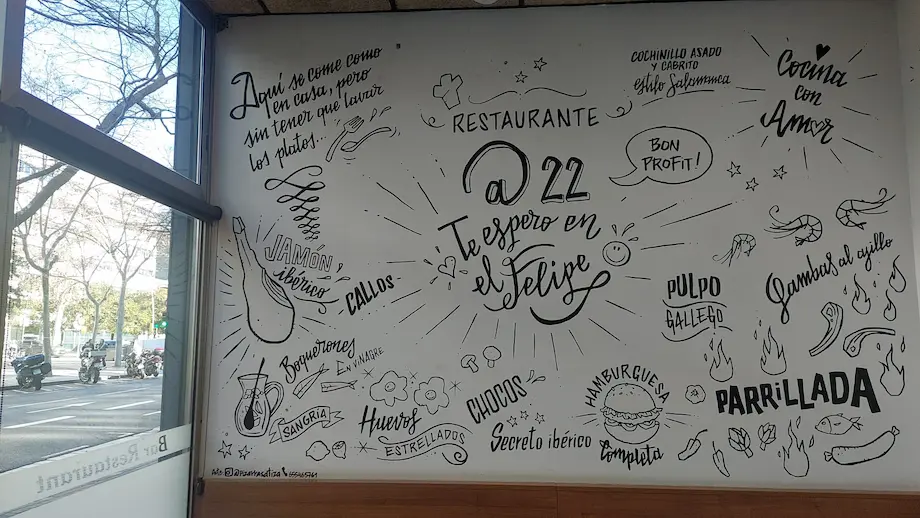 Aquí se come como
en casa, pero
sin tener que lavar
los platos...
RESTAURANTE
@ 22
Te espero en
el Felipe
COCHINILLO ASADO
Y CABRITO
estilo Salamanca
Cocina
con
Amor
BON
PROFIT!
JAMÓN
ibérico
CALLOS
PULPO
GALLEGO
Gambas al ajillo
Boquerones
EN VINAGRE
SANGRÍA
Huevos
ESTRELLADOS
CHOCOS
Secreto ibérico
HAMBURGUESA
Completa
PARRILLADA
Bar Restaurant